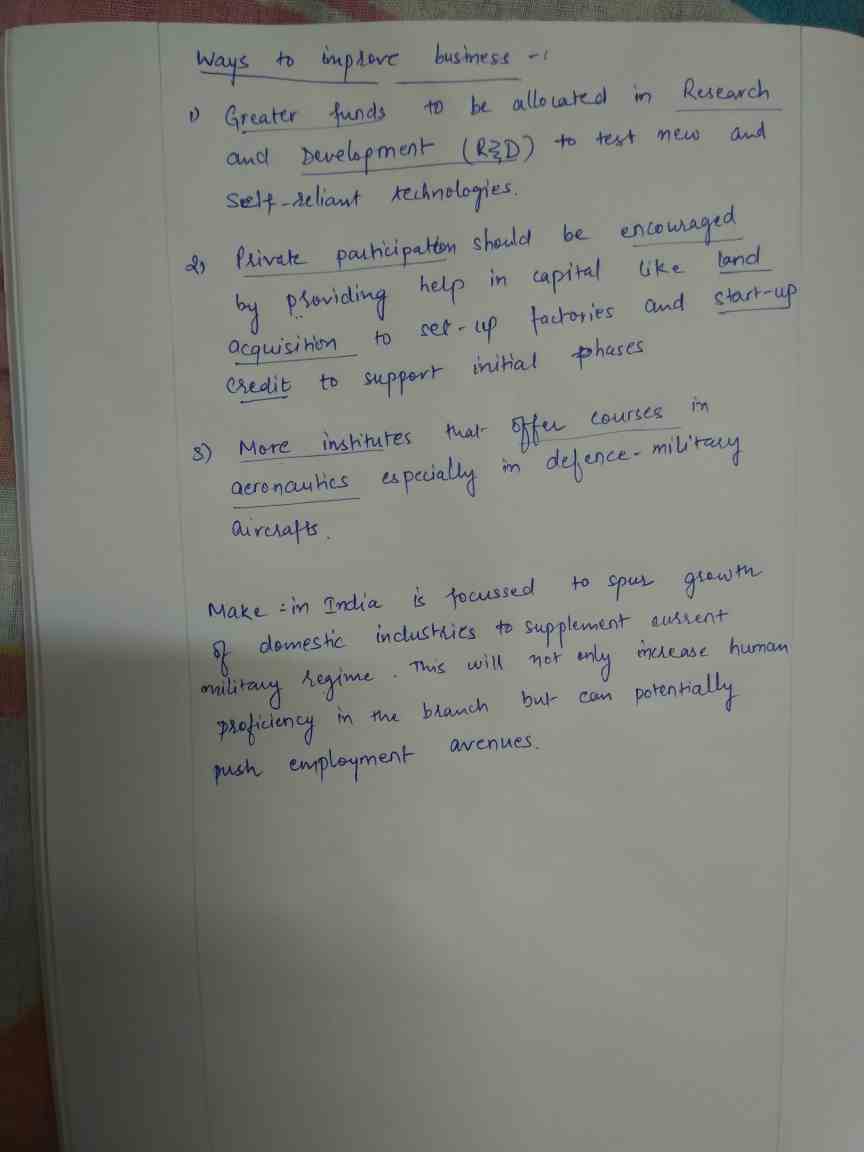 Ways to improve business -:
1) Greater funds to be allocated in Research
and Development (R&D) to test new and
self-reliant technologies.
2) Private participation should be encouraged
by providing help in capital like land
acquisition to set-up factories and start-up
credit to support initial phases
3) More institutes that offer courses in
aeronautics especially in defence-military
aircrafts.
Make-in India is focussed to spur growth
of domestic industries to supplement current
military regime. This will not only increase human
proficiency in the branch but can potentially
push employment avenues.